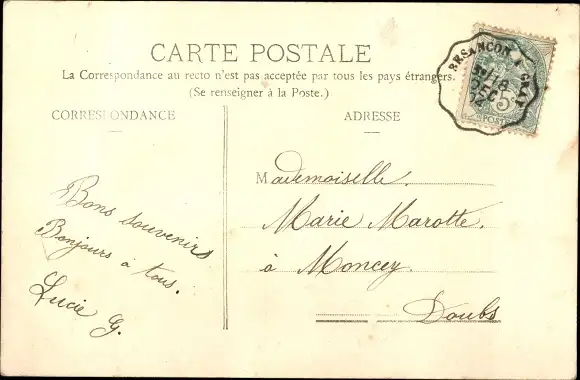 CARTE POSTALE
La Correspondance au recto n'est pas acceptée par tous les pays étrangers.
(Se renseigner à la Poste.)
CORRESPONDANCE
ADRESSE
BESANCON A GRAY
18
DEC
5c
POSTES
Mademoiselle
Marie Marotte.
à Moncey
Doubs
Bons souvenirs
Bonjours à tous.
Lucie G.